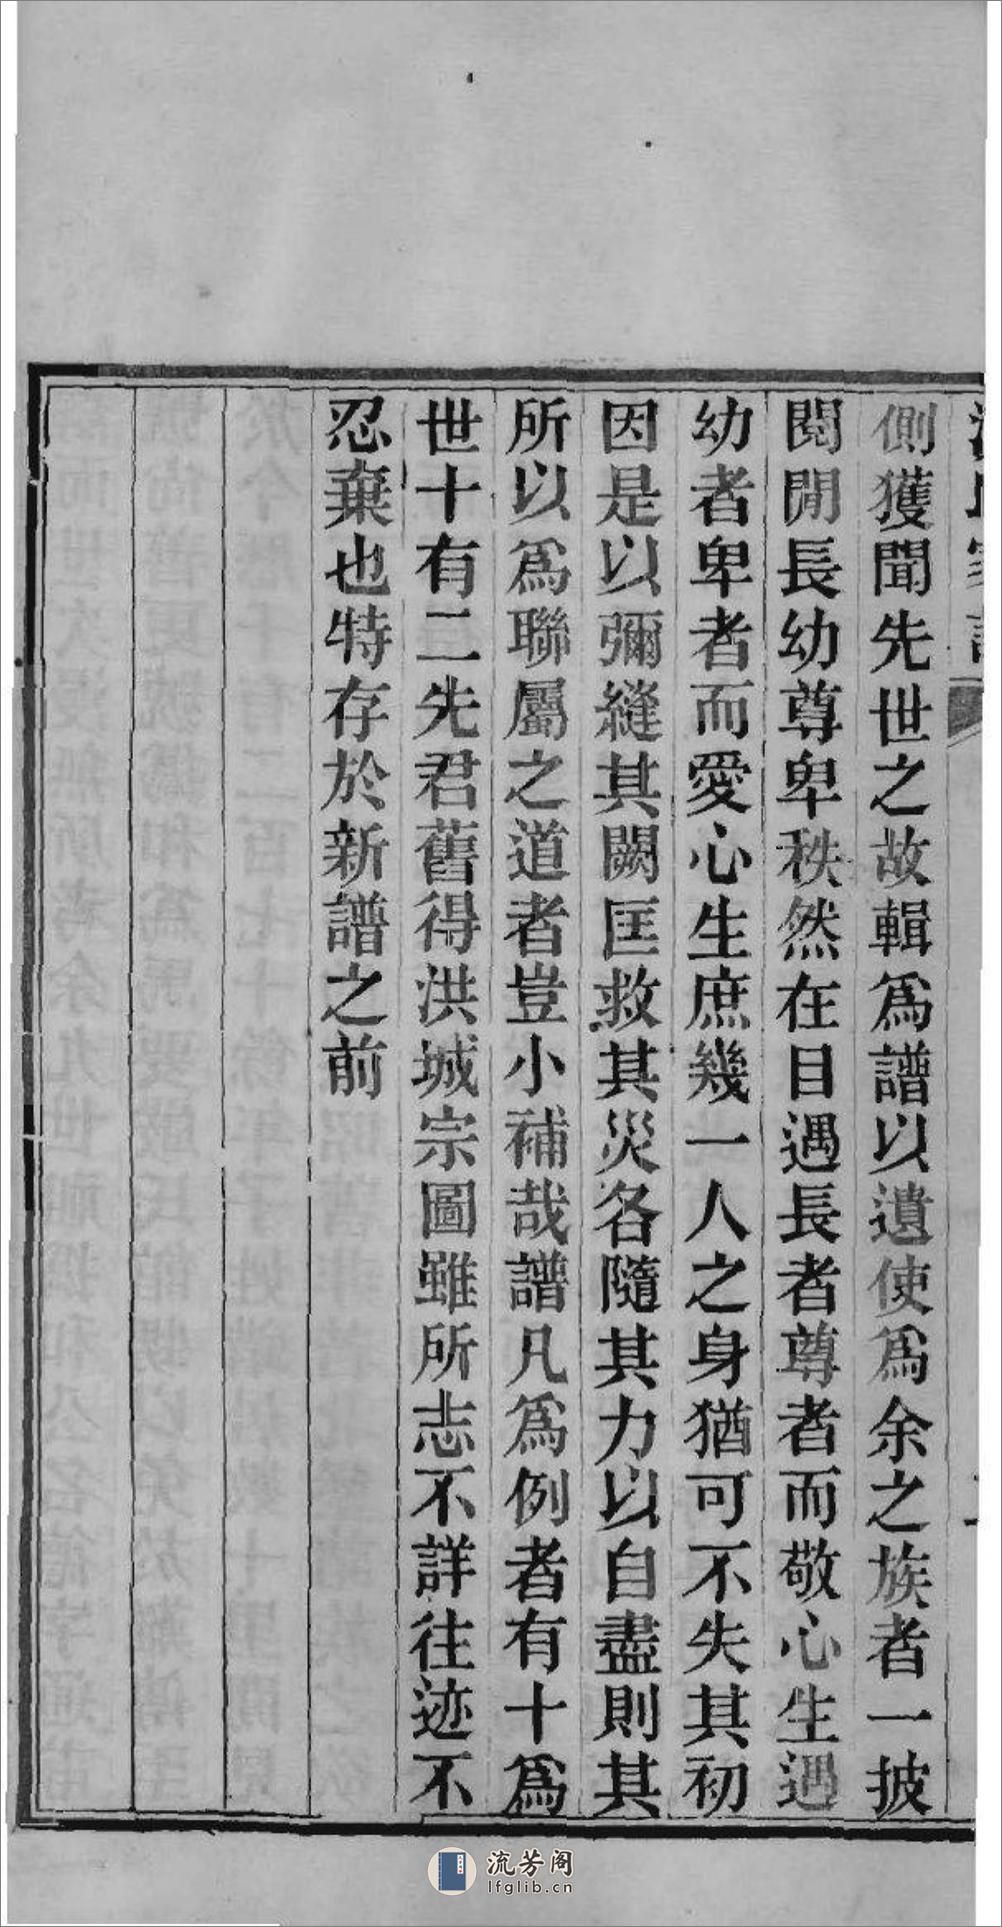 側獲聞先世之故輯爲譜以遺使爲余之族者一披
閱閒長幼尊卑秩然在目遇長者尊者而敬心生遇
幼者卑者而愛心生庶幾一人之身猶可不失其初
因是以彌縫其闕匡救其災各隨其力以自盡則其
所以爲聯屬之道者豈小補哉譜凡爲例者有十爲
世十有二先君舊得洪城宗圖雖所志不詳往迹不
忍棄也特存於新譜之前
流芳阁
lfglib.cn